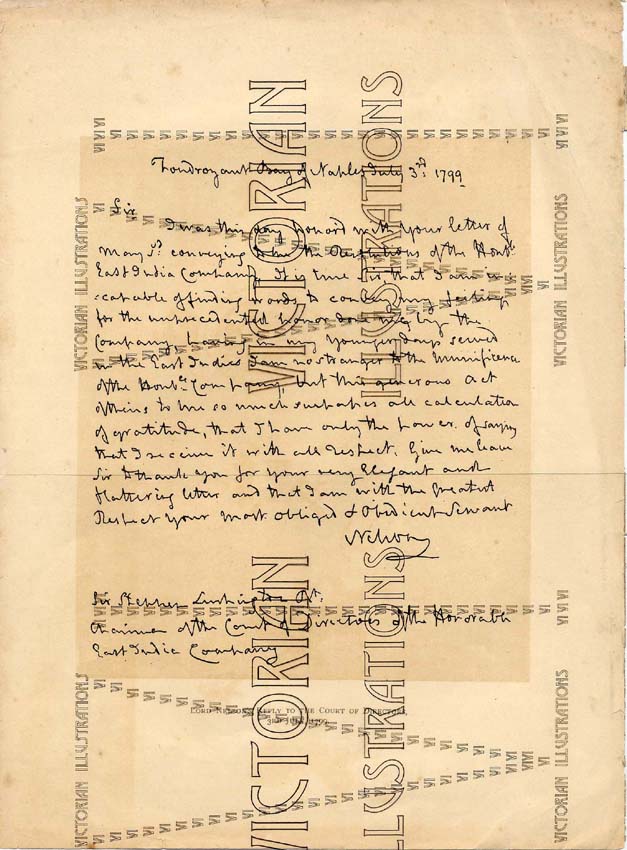 Foudroyant Bay of Naples July 3rd: 1799
Sir
I was this day honord with your letter of
May 3d: conveying to me the Resolutions of the Honble
East India Company. It is true Sir that I am in-
-capable of finding words to convey my feelings
for the unprecedented honor done me by the
Company, having in my younger days served
in the East Indies I am no stranger to the Munificence
of the Honble Company, but this generous act
of theirs to me so much surpasses all calculation
of gratitude, that I have only the power of saying
that I receive it with all respect. Give me leave
Sir to thank you for your very Elegant and
flattering letter and that I am with the greatest
Respect Your most Obliged & Obedient Servant
Nelson
Sir Stephen Lushington Bt:
Chairman of the Court of Directors of the Honorable
East India Company
LORD NELSON'S REPLY TO THE COURT OF DIRECTORS,
3RD JULY, 1799.
VICTORIAN ILLUSTRATIONS
VICTORIAN ILLUSTRATIONS
VICTORIAN ILLUSTRATIONS
VICTORIAN ILLUSTRATIONS
VICTORIAN ILLUSTRATIONS
VICTORIAN ILLUSTRATIONS